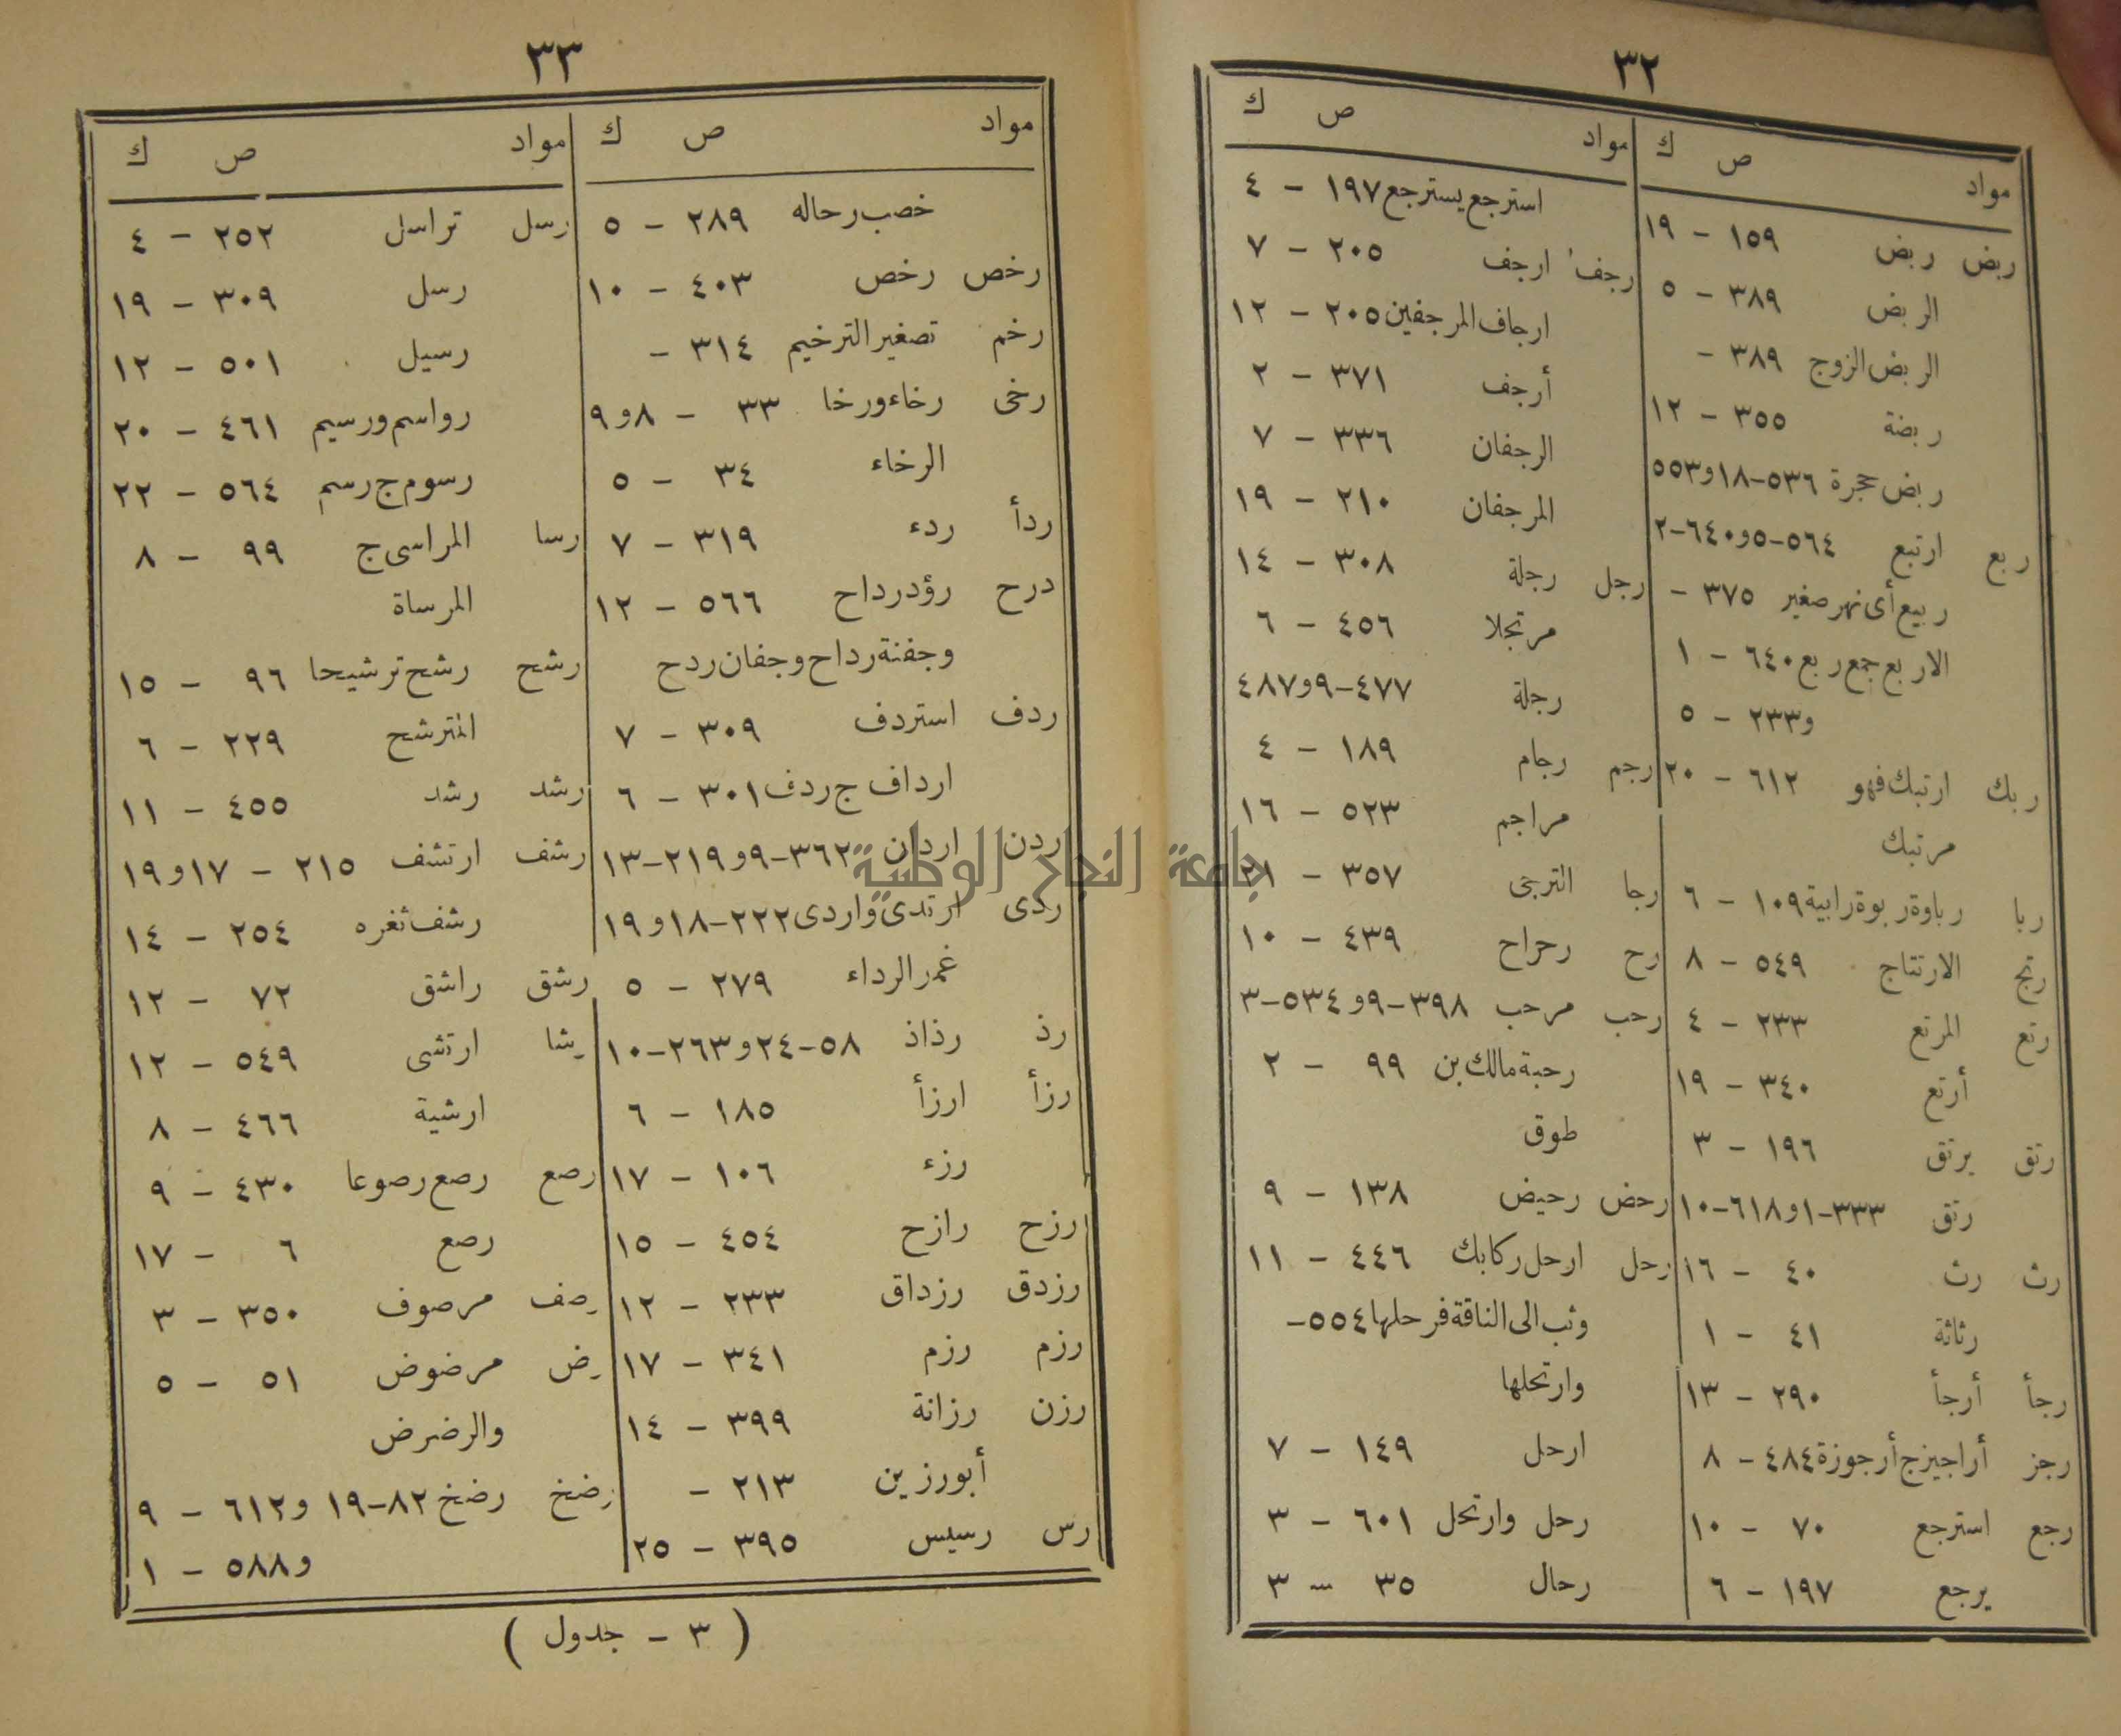 ٣٢
مواد ص ك
ربض ربض ١٥٩ - ١٩
الربض ٣٨٩ - ٥
الربض الزوج ٣٨٩ -
ربضة ٣٥٥ - ١٢
ربض حجرة ٥٣٦-١٨و٥٥٣
ربع ارتبع ٥٦٤-٥و٦٤٠-٢
ربيع أى نهر صغير ٣٧٥ -
الاربع جمع ربع ٦٤٠ - ١
و٢٣٣ - ٥
ربك ارتبك فهو ٦١٢ - ٢٠
مرتبك
ربا رباوة ربوة رابية ١٠٩ - ٦
رتج الارتتاج ٥٤٩ - ٨
رتع المرتع ٢٣٣ - ٤
أرتع ٣٤٠ - ١٩
رتق يرتق ١٩٦ - ٣
رتق ٣٣٣-١و٦١٨-١٠
رث رث ٤٠ - ١٦
رثاثة ٤١ - ١
رجأ أرجأ ٢٩٠ - ١٣
رجز أراجيز ج أرجوزة ٤٨٤ - ٨
رجع استرجع ٧٠ - ١٠
يرجع ١٩٧ - ٦
مواد ص ك
استرجع يسترجع ١٩٧ - ٤
رجف ارجف ٢٠٥ - ٧
ارجاف المرجفين ٢٠٥ - ١٢
أرجف ٣٧١ - ٢
الرجفان ٣٣٦ - ٧
المرجفان ٢١٠ - ١٩
رجل رجلة ٣٠٨ - ١٤
مرتجلا ٤٥٦ - ٦
رجلة ٤٧٧-٩و٤٨٧
رجم رجام ١٨٩ - ٤
مراجم ٥٢٣ - ١٦
رجا الترجى ٣٥٧ - ٢١
رح رحراح ٤٣٩ - ١٠
رحب مرحب ٣٩٨-٩و٥٣٤-٣
رحبة مالك بن ٩٩ - ٢
طوق
رحض رحيض ١٣٨ - ٩
رحل ارحل ركابك ٤٤٦ - ١١
وثب الى الناقة فرحلها ٥٥٤-
وارتحلها
ارحل ١٤٩ - ٧
رحل وارتحل ٦٠١ - ٣
رحال ٣٥ - ٣
٣٣
مواد ص ك
خصب رحاله ٢٨٩ - ٥
رخص رخص ٤٠٣ - ١٠
رخم تصغير الترخيم ٣١٤ -
رخى رخاء ورخا ٣٣ - ٨و٩
الرخاء ٣٤ - ٥
ردأ ردء ٣١٩ - ٧
درح رؤد رداح ٥٦٦ - ١٢
وجفنة رداح وجفان ردح
ردف استردف ٣٠٩ - ٧
ارداف ج ردف ٣٠١ - ٦
ردن اردان ٣٦٢-٩و٢١٩-١٣
ردى ارتدى واردى ٢٢٢-١٨و١٩
غمر الرداء ٢٧٩ - ٥
رذ رذاذ ٥٨-٢٤و٢٦٣-١٠
رزأ ارزأ ١٨٥ - ٦
رزء ١٠٦ - ١٧
رزح رازح ٤٥٤ - ١٥
رزدق رزداق ٢٣٣ - ١٢
رزم رزم ٣٤١ - ١٧
رزن رزانة ٣٩٩ - ١٤
أبورزين ٢١٣ -
رس رسيس ٣٩٥ - ٢٥
مواد ص ك
رسل تراسل ٢٥٢ - ٤
رسل ٣٠٩ - ١٩
رسيل ٥٠١ - ١٢
رواسم ورسيم ٤٦١ - ٢٠
رسوم ج رسم ٥٦٤ - ٢٢
رسا المراسى ج ٩٩ - ٨
المرساة
رشح رشح ترشيحا ٩٦ - ١٥
المترشح ٢٢٩ - ٦
رشد رشد ٤٥٥ - ١١
رشف ارتشف ٢١٥ - ١٧و١٩
رشف ثغره ٢٥٤ - ١٤
رشق راشق ٧٢ - ١٢
رشا ارتشى ٥٤٩ - ١٢
ارشية ٤٦٦ - ٨
رصع رصع رصوعا ٤٣٠ - ٩
رصع ٦ - ١٧
رصف مرصوف ٣٥٠ - ٣
رض مرضوض ٥١ - ٥
والرضرض
رضخ رضخ ٨٢-١٩ و٦١٢ - ٩
و٥٨٨ - ١
( ٣ - جدول )
جامعة النجاح الوطنية